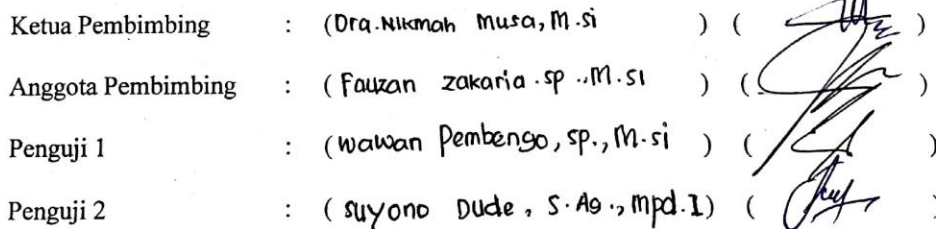 Ketua Pembimbing : (Dra. Nikmah Musa, M.si ) ( )
Anggota Pembimbing : ( Fauzan zakaria .sp ., M. si ) ( )
Penguji 1 : (wawan Pembengo, sp., M. si ) ( )
Penguji 2 : ( suyono Dude , S. Ag ., mpd. I) ( )